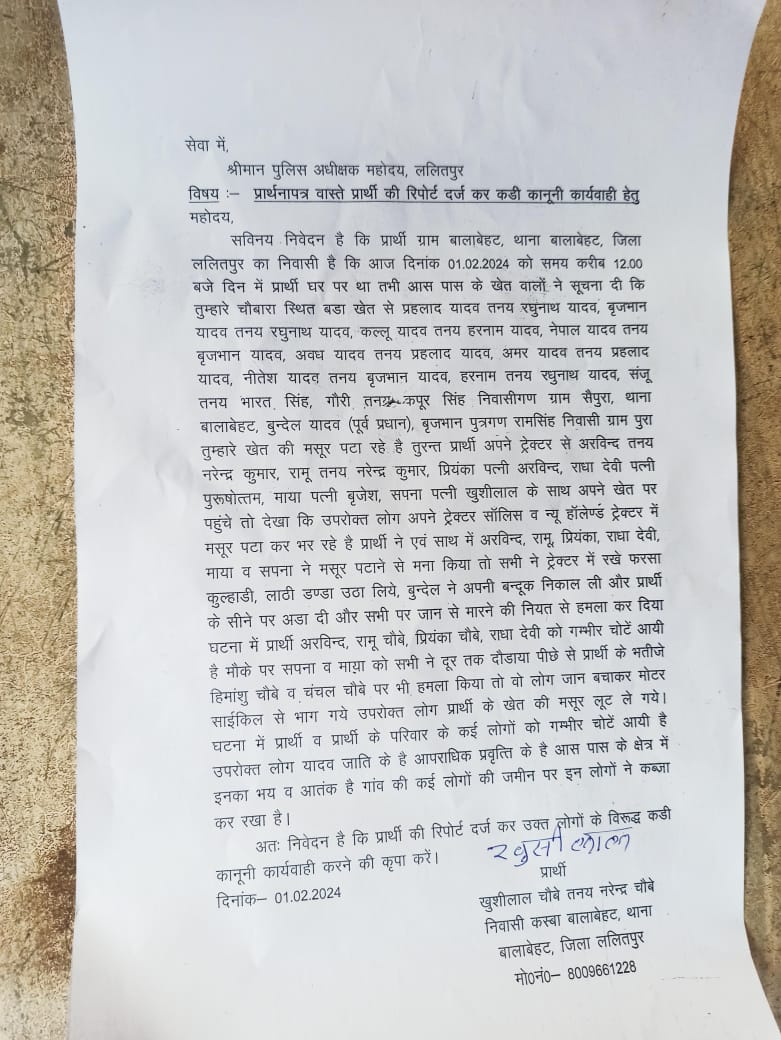 सेवा में,
श्रीमान पुलिस अधीक्षक महोदय, ललितपुर
विषय :– प्रार्थनापत्र वास्ते प्रार्थी की रिपोर्ट दर्ज कर कडी कानूनी कार्यवाही हेतु
महोदय,
सविनय निवेदन है कि प्रार्थी ग्राम बालाबेहट, थाना बालाबेहट, जिला
ललितपुर का निवासी है कि आज दिनांक 01.02.2024 को समय करीब 12.00
बजे दिन में प्रार्थी घर पर था तभी आस पास के खेत वालों ने सूचना दी कि
तुम्हारे चौबारा स्थित बडा खेत से प्रहलाद यादव तनय रघुनाथ यादव, बृजभान
यादव तनय रघुनाथ यादव, कल्लू यादव तनय हरनाम यादव, नेपाल यादव तनय
बृजभान यादव, अवध यादव तनय प्रहलाद यादव, अमर यादव तनय प्रहलाद
यादव, नीतेश यादव तनय बृजभान यादव, हरनाम तनय रघुनाथ यादव, संजू
तनय भारत सिंह, गौरी तनय कपूर सिंह निवासीगण ग्राम सैपुरा, थाना
बालाबेहट, बुन्देल यादव (पूर्व प्रधान), बृजभान पुत्रगण रामसिंह निवासी ग्राम पुरा
तुम्हारे खेत की मसूर पटा रहे है तुरन्त प्रार्थी अपने ट्रेक्टर से अरविन्द तनय
नरेन्द्र कुमार, रामू तनय नरेन्द्र कुमार, प्रियंका पत्नी अरविन्द, राधा देवी पत्नी
पुरूषोत्तम, माया पत्नी बृजेश, सपना पत्नी खुशीलाल के साथ अपने खेत पर
पहुंचे तो देखा कि उपरोक्त लोग अपने ट्रेक्टर सॉलिस व न्यू हॉलेण्ड ट्रेक्टर में
मसूर पटा कर भर रहे है प्रार्थी ने एवं साथ में अरविन्द, रामू, प्रियंका, राधा देवी,
माया व सपना ने मसूर पटाने से मना किया तो सभी ने ट्रेक्टर में रखे फरसा
कुल्हाडी, लाठी डण्डा उठा लिये, बुन्देल ने अपनी बन्दूक निकाल ली और प्रार्थी
के सीने पर अडा दी और सभी पर जान से मारने की नियत से हमला कर दिया
घटना में प्रार्थी अरविन्द, रामू चौबे, प्रियंका चौबे, राधा देवी को गम्भीर चोटें आयी
है मौके पर सपना व माया को सभी ने दूर तक दौडाया पीछे से प्रार्थी के भतीजे
हिमांशु चौबे व चंचल चौबे पर भी हमला किया तो वो लोग जान बचाकर मोटर
साईकिल से भाग गये उपरोक्त लोग प्रार्थी के खेत की मसूर लूट ले गये।
घटना में प्रार्थी व प्रार्थी के परिवार के कई लोगों को गम्भीर चोटें आयी है
उपरोक्त लोग यादव जाति के है आपराधिक प्रवृत्ति के है आस पास के क्षेत्र में
इनका भय व आतंक है गांव की कई लोगों की जमीन पर इन लोगों ने कब्जा
कर रखा है।
अतः निवेदन है कि प्रार्थी की रिपोर्ट दर्ज कर उक्त लोगों के विरूद्ध कडी
कानूनी कार्यवाही करने की कृपा करें।
खुसी लाल
प्रार्थी
दिनांक– 01.02.2024
खुशीलाल चौबे तनय नरेन्द्र चौबे
निवासी कस्बा बालाबेहट, थाना
बालाबेहट, जिला ललितपुर
मो0नं0– 8009661228